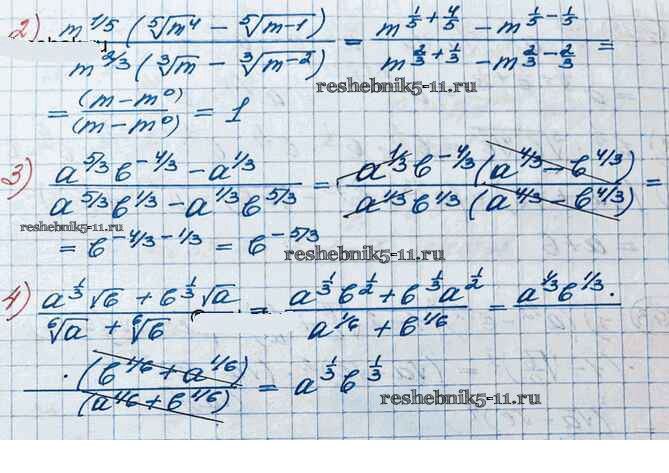 2) m^{1/5} (\sqrt[5]{m^4} - \sqrt[5]{m-1}) / m^{2/3} (\sqrt[3]{m} - \sqrt[3]{m-2}) = m^{1/5 + 4/5} - m^{1/5 - 1/5} / m^{2/3 + 1/3} - m^{2/3 - 2/3} =
reshebnik5-11.ru
= (m - m^0) / (m - m^0) = 1
3) a^{5/3} b^{-4/3} - a^{1/3} / a^{5/3} b^{1/3} - a^{1/3} b^{5/3} = a^{1/3} b^{-4/3} (a^{4/3} - b^{4/3}) / a^{1/3} b^{1/3} (a^{4/3} - b^{4/3}) =
reshebnik5-11.ru
= b^{-4/3 - 1/3} = b^{-5/3}
reshebnik5-11.ru
4) a^{1/3} \sqrt{b} + b^{1/3} \sqrt{a} / \sqrt[6]{a} + \sqrt[6]{b} = a^{1/3} b^{1/2} + b^{1/3} a^{1/2} / a^{1/6} + b^{1/6} = a^{1/3} b^{1/3} ·
· (b^{1/6} + a^{1/6}) / (a^{1/6} + b^{1/6}) = a^{1/3} b^{1/3}
reshebnik5-11.ru